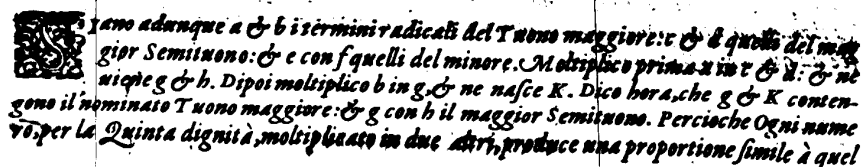 SIano adunque a & b i termini radicati del Tuono maggiore: c & d quelli del mag
gior Semituono: & e con f quelli del minore. Moltiplico prima a in c & d: & ne
uiene g & h. Dipoi moltiplico b in g, & ne naſce K. Dico hora, che g & K conten-
gono il nominato Tuono maggiore: & g con h il maggior Semituono. Percioche Ogni nume
ro, per la Quinta dignità, moltiplicato in due altri, produce una proportione ſimile à quel